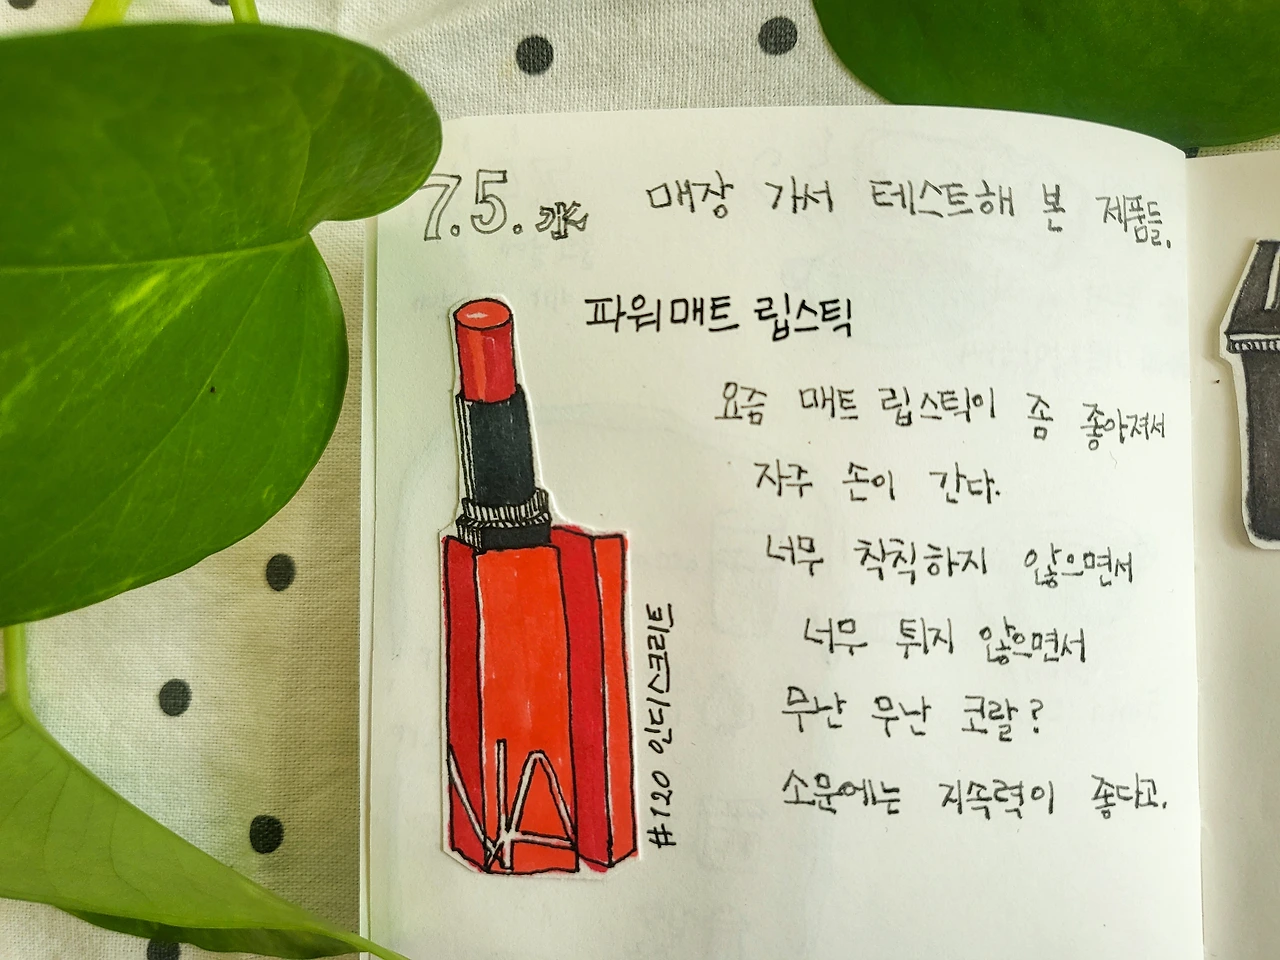 7.5. 水 매장 가서 테스트해 본 제품들.
파워매트 립스틱
요즘 매트 립스틱이 좀 좋아져서
자주 손이 간다.
너무 착칙하지 않으면서
너무 튀지 않으면서
무난 무난 코랄?
소문에는 지속력이 좋다고.
#120 인디스크리트